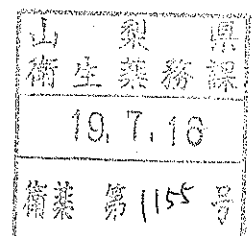 山梨県
衛生薬務課
19.7.18
衛薬 第1155号